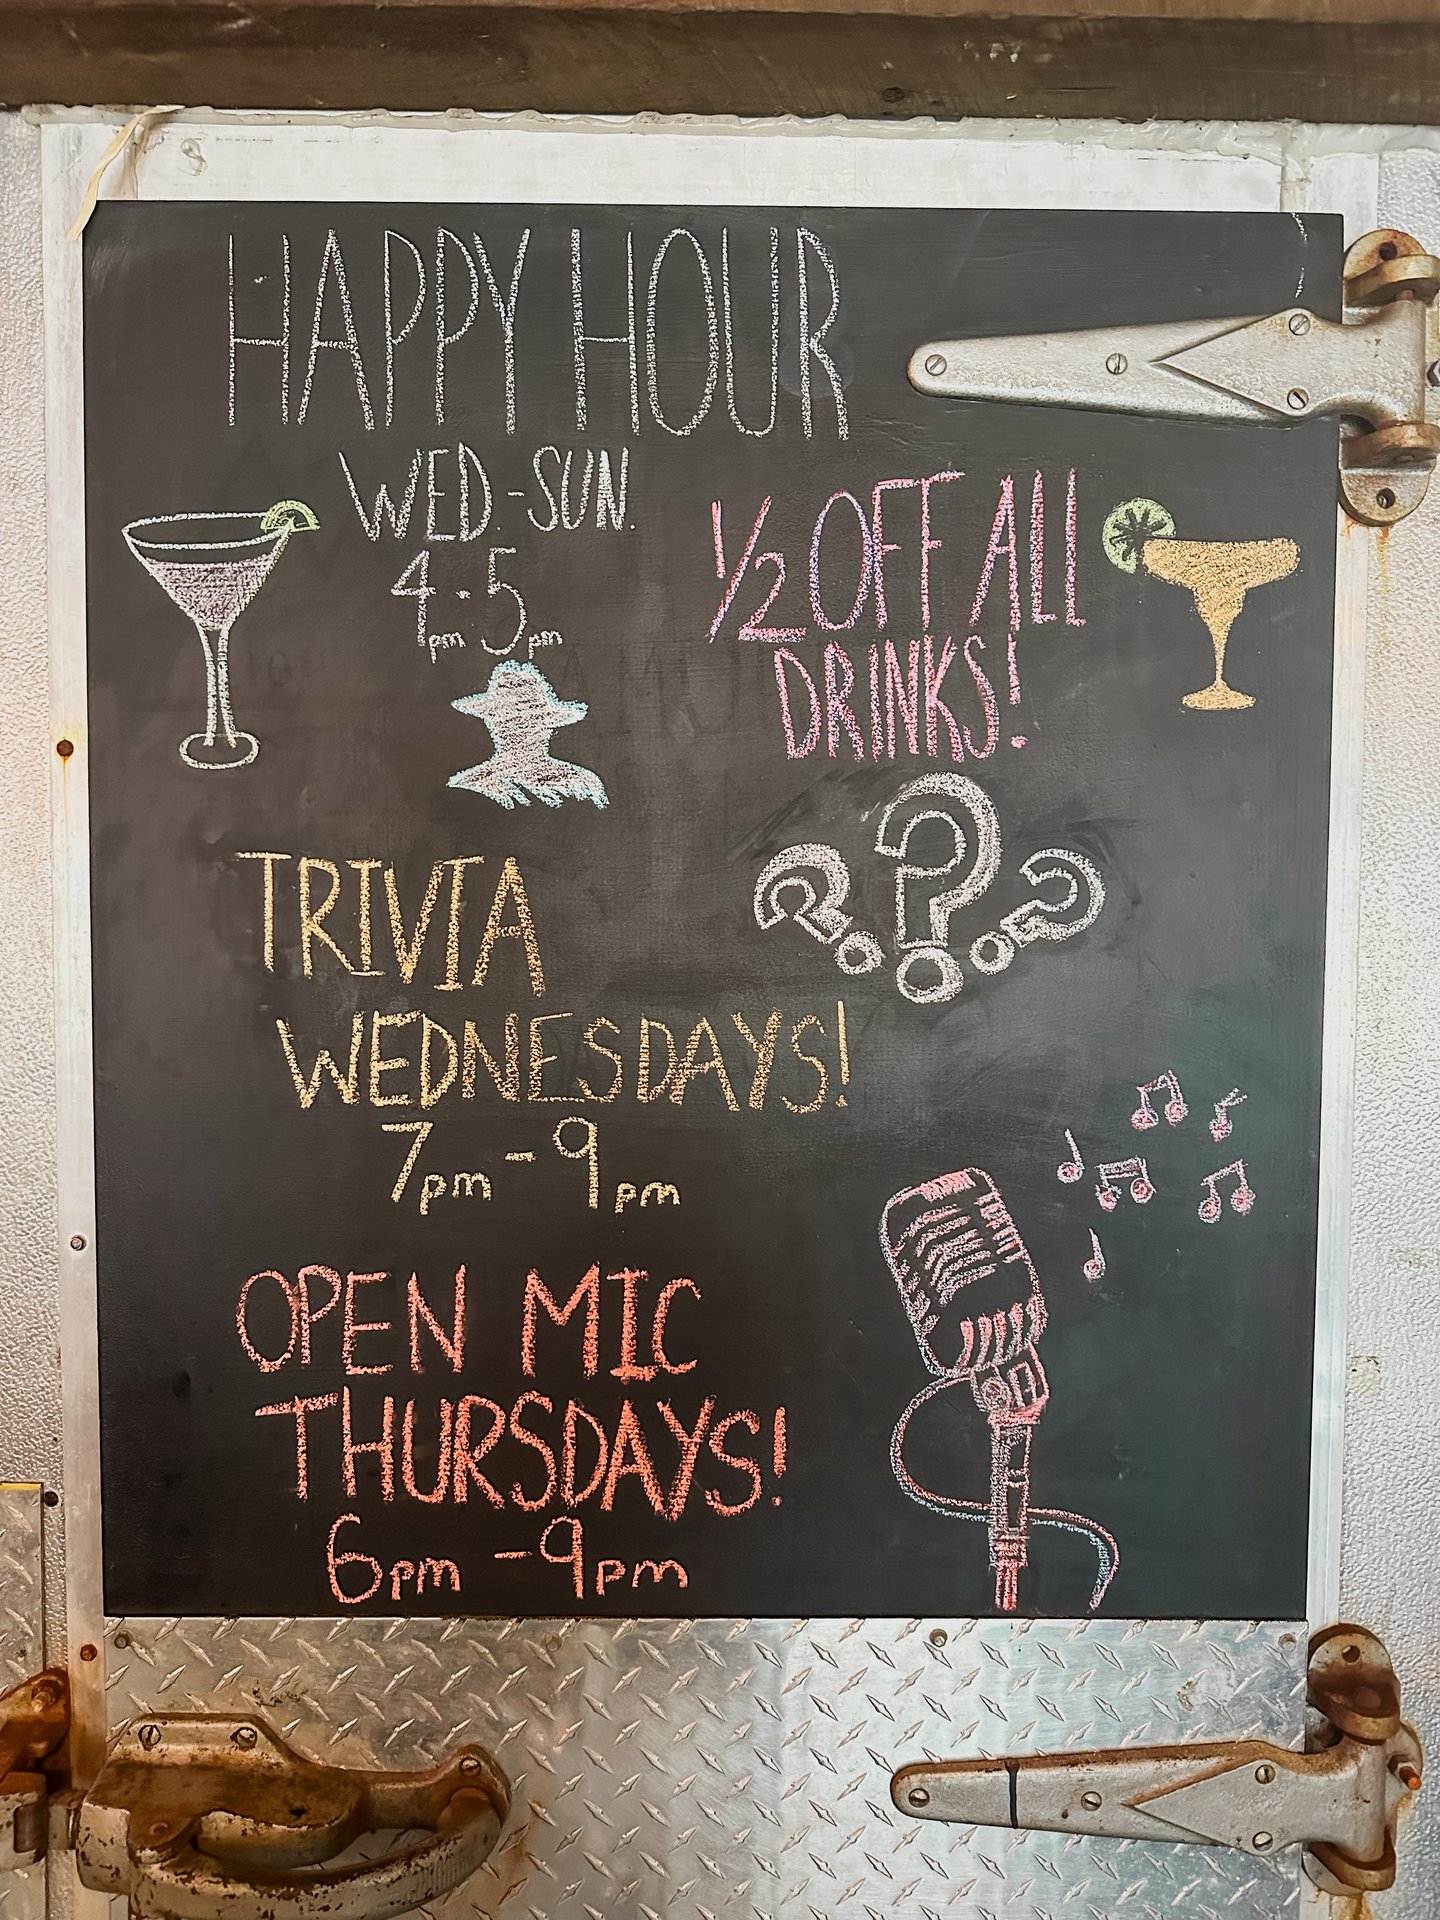 HAPPY HOUR
WED.-SUN.
4pm-5pm
1/2 OFF ALL
DRINKS!
???
TRIVIA
WEDNESDAYS!
7pm-9pm
OPEN MIC
THURSDAYS!
6pm-9pm